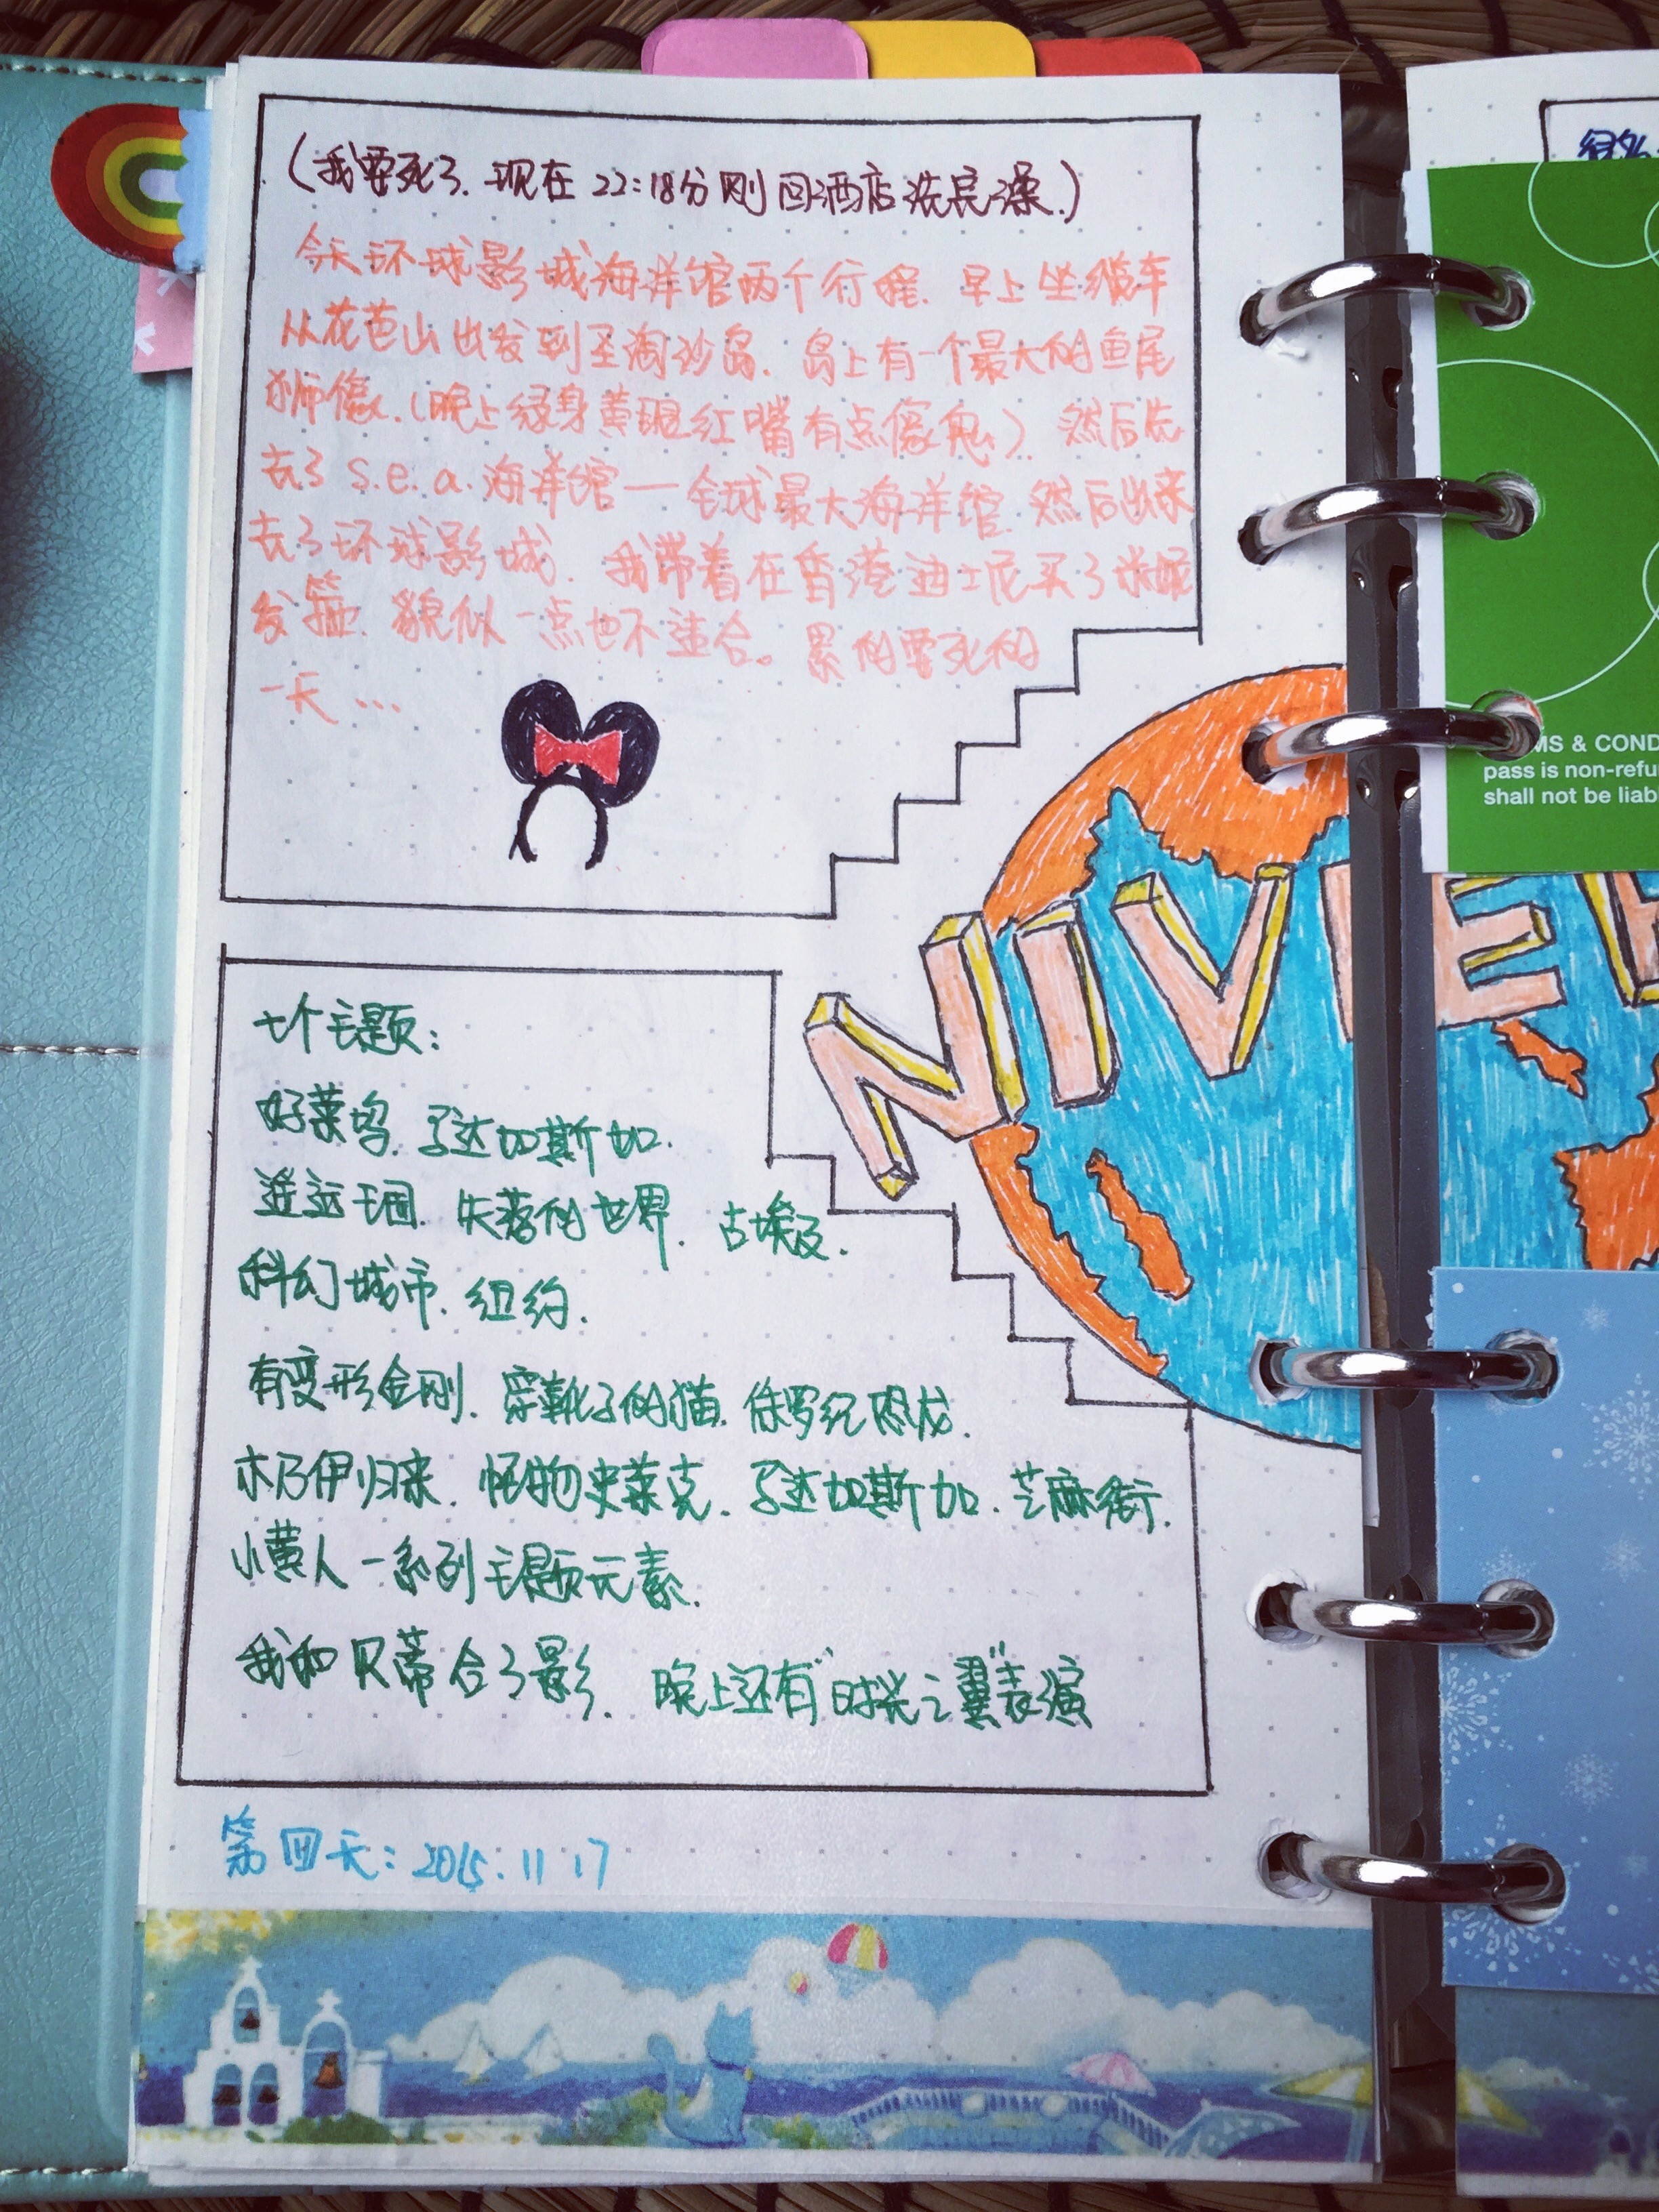 （我要死了.现在22:18分刚回酒店洗完澡.）
今天环球影城海洋馆两个行程.早上坐缆车
从花芭山出发到圣淘沙岛.岛上有一个最大的鱼尾
狮像.（晚上绿身黄眼红嘴有点像鬼）.然后先
去了s.e.a.海洋馆—全球最大海洋馆.然后出来
去了环球影城.我带着在香港迪士尼买了米妮
发箍.貌似一点也不适合。累的要死的
一天...
七个主题：
好莱坞.马达加斯加.
遥远王国.失落的世界.古埃及.
科幻城市.纽约.
有变形金刚.穿靴子的猫.侏罗纪恐龙.
木乃伊归来.怪物史莱克.马达加斯加.芝麻街.
小黄人一系列主题元素.
我和贝蒂合了影.晚上还有"时光之翼"表演
第四天：2015.11.17
NIVE
MS & COND
pass is non-refu
shall not be liab